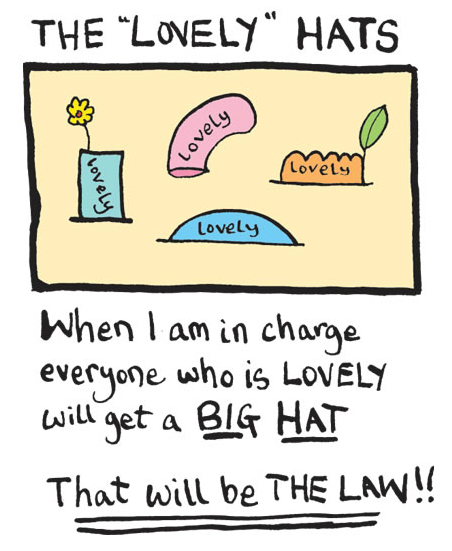 THE "LOVELY" HATS
Lovely
Lovely
Lovely
Lovely
When I am in charge
everyone who is LOVELY
will get a BIG HAT
That will be THE LAW!!